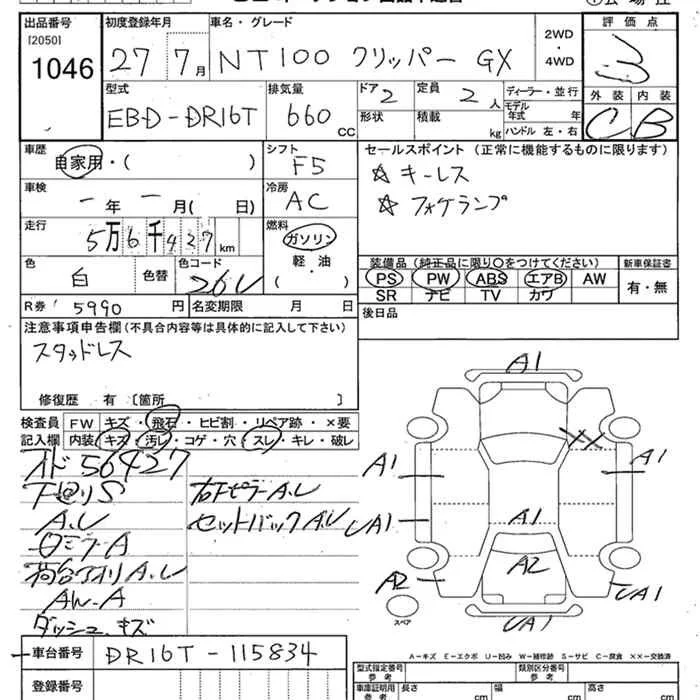 出品番号 初度登録年月 車名・グレード 評価点
[2050]
1046 27年 7月 NT100 クリッパー GX 2WD・4WD 3
型式 排気量 ドア 2 定員 2人 ディーラー・並行 外装 内装
EBD-DR16T 660cc 形状 積載 kg モデル年式 年 C B
ハンドル 左・右
車歴 シフト セールスポイント(正常に機能するものに限ります)
自家用・( ) F5 ☆ キーレス
車検 冷房 ☆ フォグランプ
ー年ー月( 日) AC
走行 燃料
5万6千427km ガソリン
色 色替 色コード 軽・油 装備品(純正品に限り○をつけてください) 新車保証書
白 26U ( ) PS PW ABS エアB AW 有・無
SR ナビ TV カワ
R券 5990円 名変期限 月 日 後日品
注意事項申告欄(不具合内容等は具体的に記入して下さい)
スタッドレス
修復歴 有〔箇所 〕
検査員 FW キズ・飛石・ヒビ割・リペア跡・×要
記入欄 内装 キズ・汚レ・コゲ・穴・スレ・キレ・破レ
オド56427
下廻りS 右FピラーA.U
A.U セットバックA.U
ロミラーA
荷台アオリA.U
AW-A
ダッシュ、キズ
A1
XX
A1 A1
UA1 A1
A2 A2 UA1
スペア UA1
A-キズ E-エクボ U-凹み W-補修跡 S-サビ C-腐食 XX-交換済
車台番号 DR16T-115834
登録番号
型式指定番号 参考 類別区分番号 参考
車庫証明用 参考 長さ cm 幅 cm 高さ cm